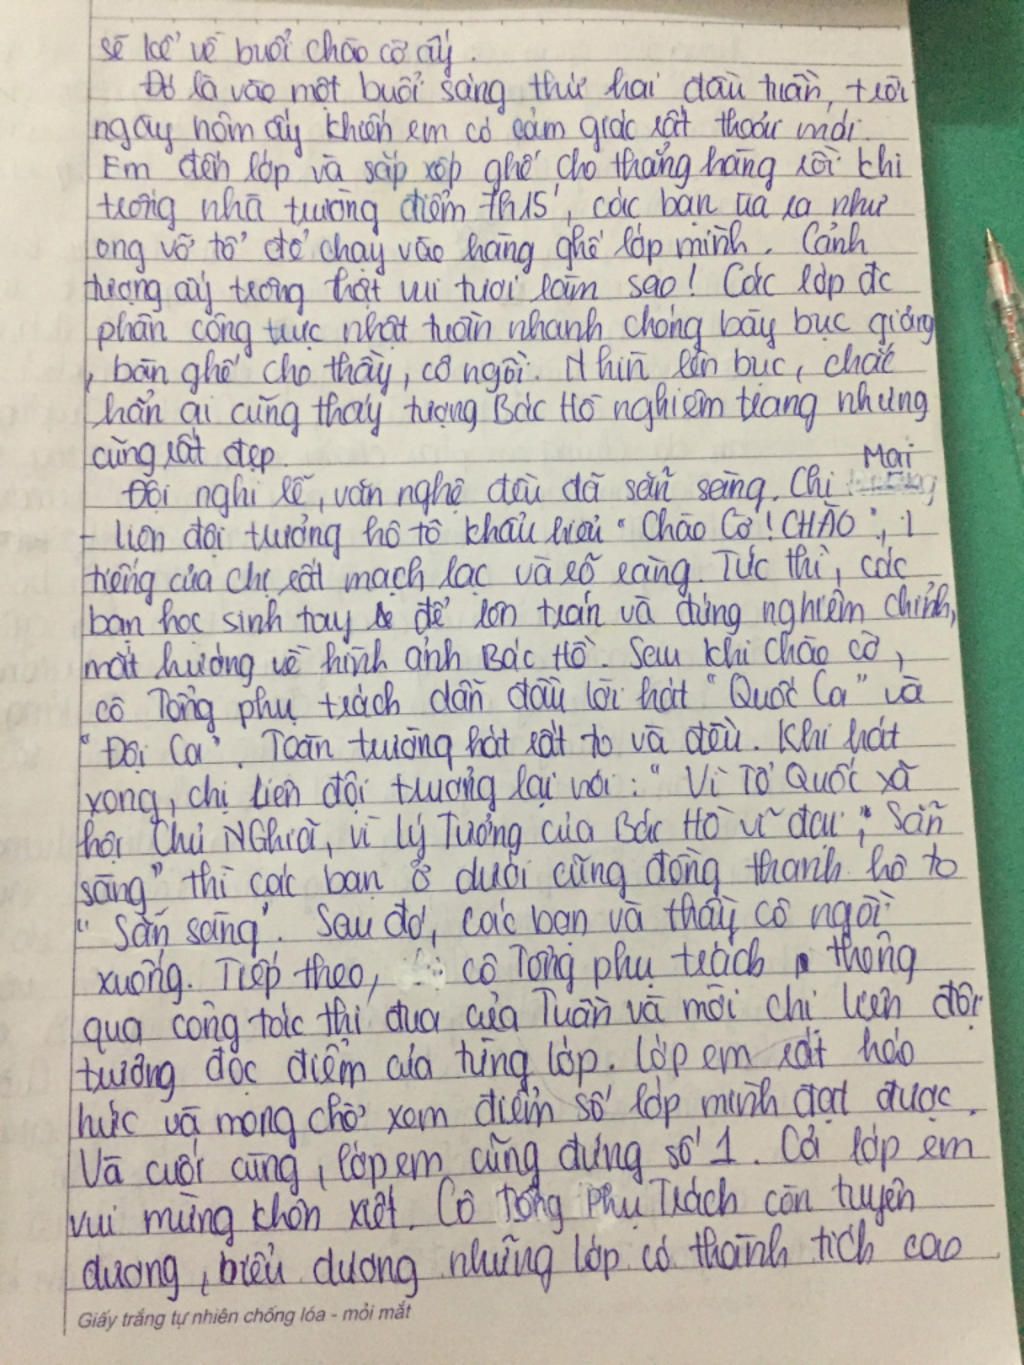 sẽ kể về buổi chào cờ ấy.
Đó là vào một buổi sáng thứ hai đầu tuần, trời
ngày hôm ấy khiến em có cảm giác rất thoải mái.
Em đến lớp và sắp xếp ghế cho thẳng hàng rồi khi
trống nhà trường điểm 7h15', các bạn ùa ra như
ong vỡ tổ để chạy vào hàng ghế lớp mình. Cảnh
tượng ấy trông thật vui tươi làm sao! Các lớp đc
phân công trực nhật tuần nhanh chóng bày bục giảng
, bàn ghế cho thầy, cô ngồi. Nhìn lên bục, chắc
hẳn ai cũng thấy tượng Bác Hồ nghiêm trang nhưng
cũng rất đẹp.
Đội nghi lễ, văn nghệ đều đã sẵn sàng. Chị Mai
- liên đội trưởng hô to khẩu hiệu "Chào Cờ! CHÀO",
tiếng của chị rất mạch lạc và rõ ràng. Tức thì, các
bạn học sinh tay để lên trán và đứng nghiêm chỉnh,
mắt hướng về hình ảnh Bác Hồ. Sau khi chào cờ,
cô Tổng phụ trách dẫn đầu lời hát "Quốc Ca" và
"Đội Ca". Toàn trường hát rất to và đều. Khi hát
xong, chị liên đội trưởng lại nói: "Vì Tổ Quốc xã
hội Chủ NGhĩa, vì lý Tưởng của Bác Hồ vĩ đại, Sẵn
sàng" thì các bạn ở dưới cũng đồng thanh hô to
"Sẵn sàng". Sau đó, các bạn và thầy cô ngồi
xuống. Tiếp theo, cô Tổng phụ trách thông
qua công tác thi đua của Tuần và mời chị liên đội
trưởng đọc điểm của từng lớp. Lớp em rất háo
hức và mong chờ xem điểm số lớp mình đạt được.
Và cuối cùng, lớp em cũng đứng số 1. Cả lớp em
vui mừng khôn xiết. Cô Tổng Phụ Trách còn tuyên
dương, biểu dương những lớp có thành tích cao
Giấy trắng tự nhiên chống lóa - mỏi mắt